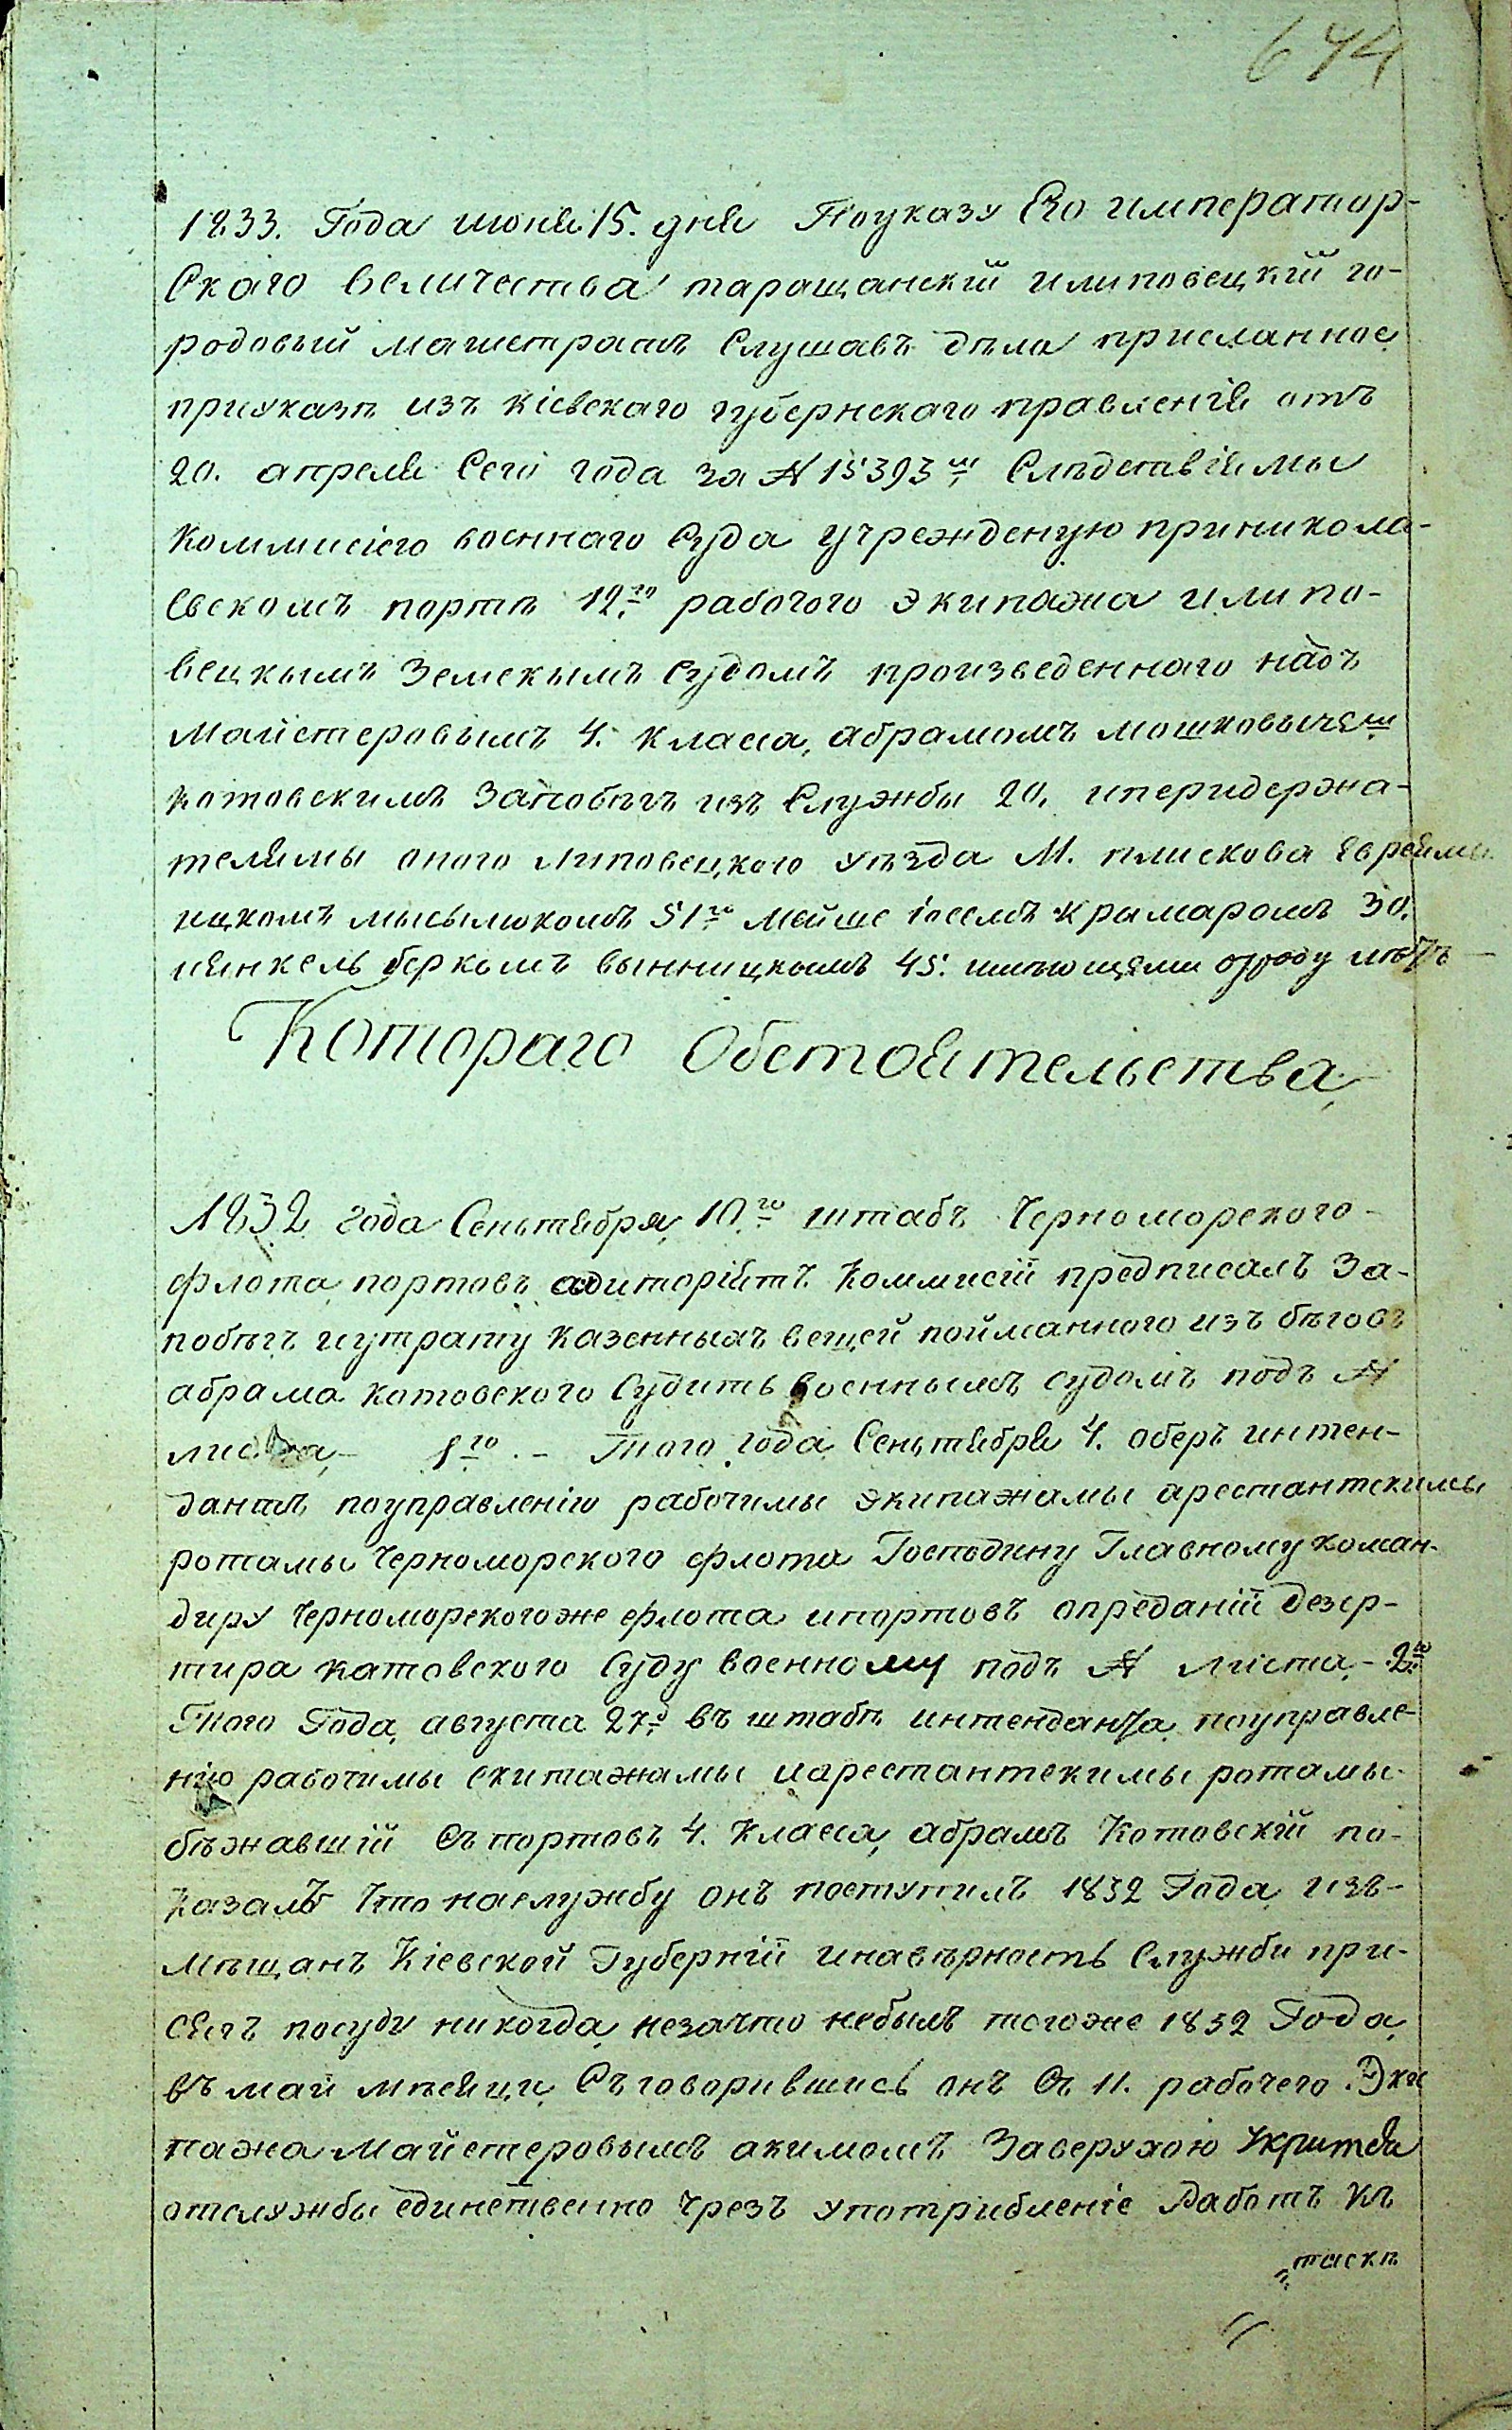 644
1833. Года июня 15. дня Поуказу Его император-
Скаго величества таращанскій илиповецкій го-
родовый магистратъ Слушавъ дѣла присланное
приуказѣ изъ кіевскаго губернскаго правленія отъ
20. апреля Сего года за № 15393м Слѣдствіямы
Коммисіею военнаго Суда учрежденую приникола-
Евскомъ портѣ 12го рабочого экипажа илипо-
вецкымъ Земскымъ Судомъ произведеннаго надъ
Майстеровымъ 4. класса, абрамомъ мошковычем
котовскимъ Запобѣгъ изъ Службы 20. иперидержа-
телямы оного липовецкого уѣзда М. плискова Евреямы
ицкомъ мысылюкомъ 51го Мейше іосемъ крамаромъ 30.
иянкель беркомъ вынницкымъ 45. имѣющеми отроду лѣтъ
Котораго Обстоятельства
1832 года Сеньтября 10го штабъ Черноморского
флота портовъ адиторіятъ Коммисіи предписалъ За-
побѣгъ иутрату казенныхъ вещей пойманного изъ бѣговъ
абрама котовского Судить военнымъ судомъ подъ №
листа 1го - Того года Сеньтября 4. оберъ интен-
дантъ поуправленію рабочимы экипажамы арестантскимы
ротамы Черноморского флота Господину Главному коман-
диру Черноморскогоже флота ипортовъ опреданіи дезер-
тира катовского Суду военному подъ № листа 2го
Того Года, августа 27го въ штабѣ интенданта поуправле-
нію рабочимы екипажамы иарестантскимы ротамы
бѣжавшій Съ портовъ 4. Класса, абрамъ Котовскій по-
казалъ Что наслужбу онъ поступилъ 1832 Года изъ-
Мѣщанъ Кіевской Губерніи инавѣрность Службы при-
сягъ посуду никогда, незачто небылъ тогоже 1832 Года,
въ маи мѣсяци, Съговорившись онъ Съ 11. рабочего Эки
пажа Майстеровымъ акимомъ Заверухою Укритея
отслужбы единственно Чрезъ употрибленіе Работъ Къ
таскѣ